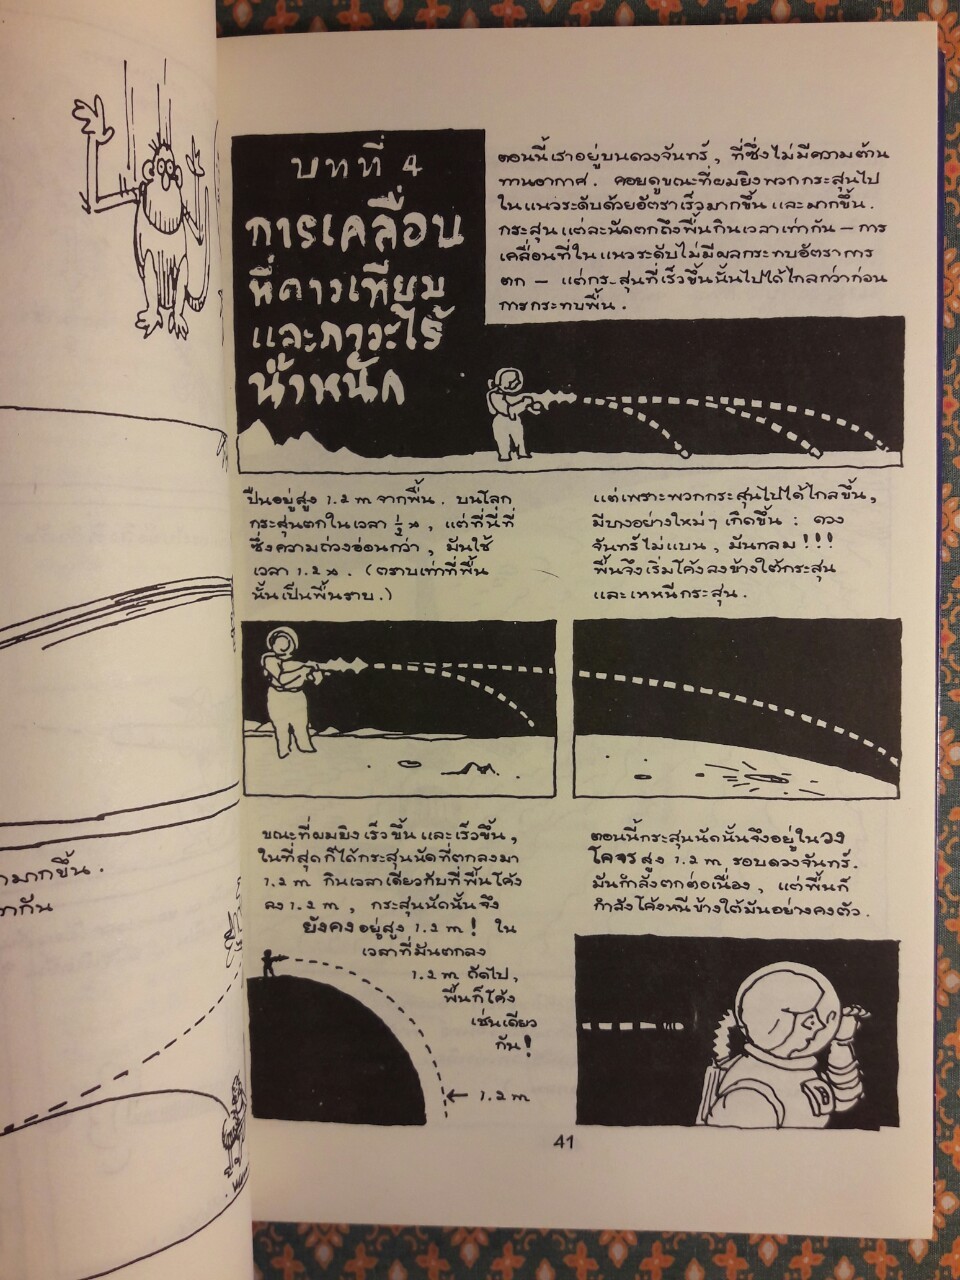 บทที่ 4
การเคลื่อน
ที่ดาวเทียม
และภาวะไร้
น้ำหนัก
ตอนนี้เราอยู่บนดวงจันทร์, ที่ซึ่งไม่มีความต้าน
ทานอากาศ. คอยดูขณะที่ผมยิงพวกกระสุนไป
ในแนวระดับด้วยอัตราเร็วมากขึ้นและมากขึ้น.
กระสุนแต่ละนัดตกถึงพื้นกินเวลาเท่ากัน — การ
เคลื่อนที่ในแนวระดับไม่มีผลกระทบอัตราการ
ตก — แต่กระสุนที่เร็วขึ้นนั้นไปได้ไกลกว่าก่อน
การกระทบพื้น.
ปืนอยู่สูง 1.2 m จากพื้น. บนโลก
กระสุนตกในเวลา ½ s, แต่ที่นี่ที่
ซึ่งความถ่วงอ่อนกว่า, มันใช้
เวลา 1.2 s. (ตราบเท่าที่พื้น
นั้นเป็นพื้นราบ.)
แต่เพราะพวกกระสุนไปได้ไกลขึ้น,
มีบางอย่างใหม่ๆ เกิดขึ้น : ดวง
จันทร์ไม่แบน, มันกลม!!!
พื้นจึงเริ่มโค้งลงข้างใต้กระสุน
และเหหนีกระสุน.
ขณะที่ผมยิงเร็วขึ้นและเร็วขึ้น,
ในที่สุดก็ได้กระสุนนัดที่ตกลงมา
1.2 m กินเวลาเดียวกับที่พื้นโค้ง
ลง 1.2 m, กระสุนนัดนั้นจึง
ยังคงอยู่สูง 1.2 m! ใน
เวลาที่มันตกลง
1.2 m ถัดไป,
พื้นก็โค้ง
เช่นเดียว
กัน!
← 1.2 m
ตอนนี้กระสุนนัดนั้นจึงอยู่ในวง
โคจรสูง 1.2 m รอบดวงจันทร์.
มันกำลังตกต่อเนื่อง, แต่พื้นก็
กำลังโค้งหนีข้างใต้มันอย่างคงตัว.
41
มากขึ้น.